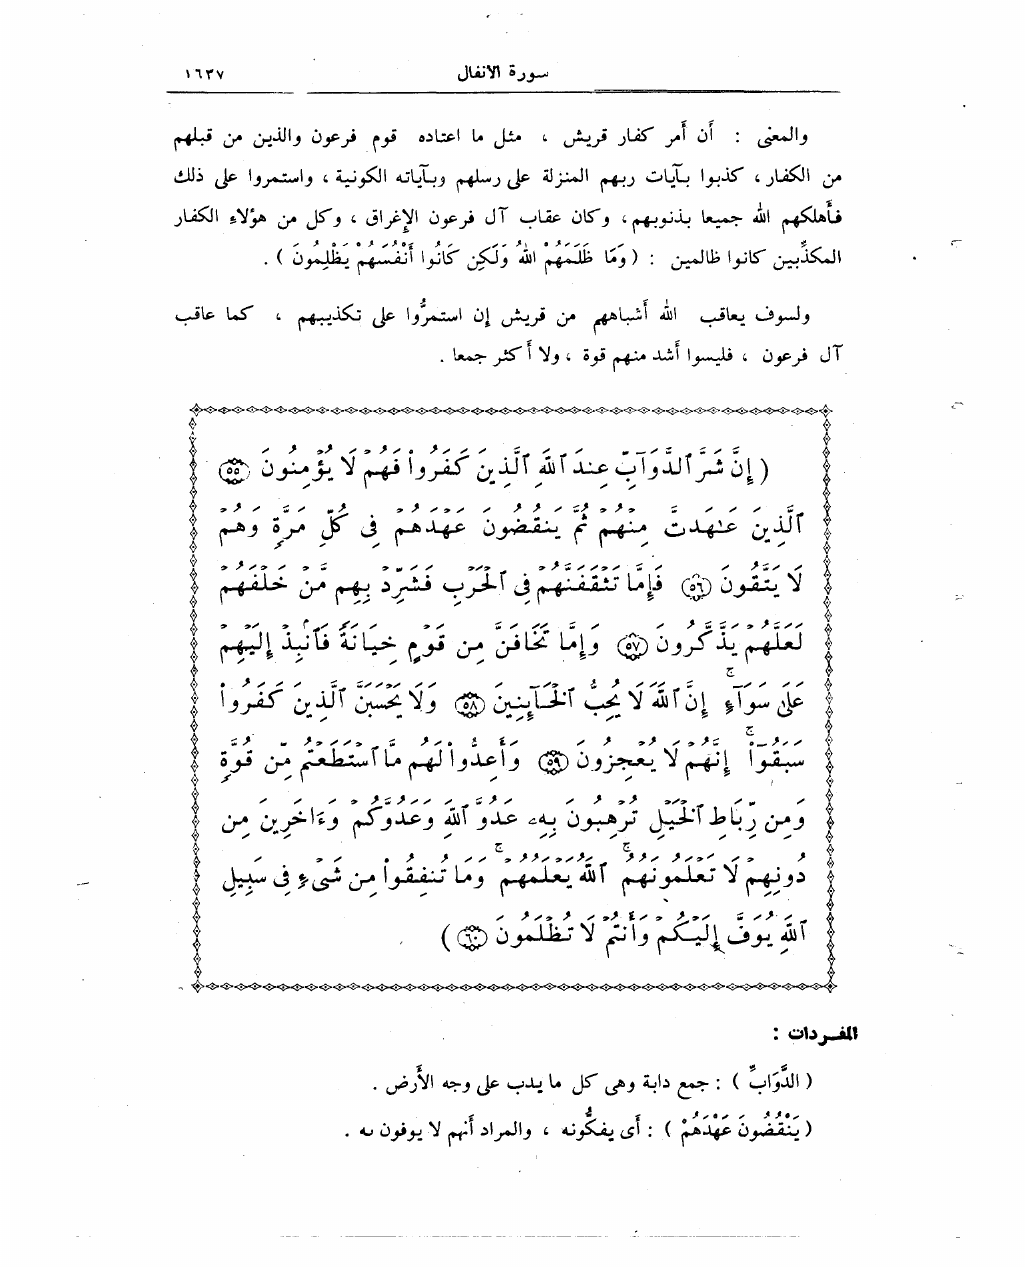 سورة الأنفال ١٦٣٧
والمعنى : أن أمر كفار قريش ، مثل ما اعتاده قوم فرعون والذين من قبلهم
من الكفار ، كذبوا بآيات ربهم المنزلة على رسلهم وبآياته الكونية ، واستمروا على ذلك
فأهلكهم الله جميعا بذنوبهم ، وكان عقاب آل فرعون الإغراق ، وكل من هؤلاء الكفار
المكذِّبين كانوا ظالمين : ( وَمَا ظَلَمَهُمْ اللهُ وَلَكِن كَانُوا أَنْفُسَهُمْ يَظْلِمُونَ ) .
ولسوف يعاقب الله أشباههم من قريش إن استمرُّوا على تكذيبهم ، كما عاقب
آل فرعون ، فليسوا أشد منهم قوة ، ولا أكثر جمعا .
( إِنَّ شَرَّ ٱلدَّوَآبِّ عِندَ ٱللَّهِ ٱلَّذِينَ كَفَرُوا۟ فَهُمْ لَا يُؤْمِنُونَ ٥٥
ٱلَّذِينَ عَـٰهَدتَّ مِنْهُمْ ثُمَّ يَنقُضُونَ عَهْدَهُمْ فِى كُلِّ مَرَّةٍ وَهُمْ
لَا يَتَّقُونَ ٥٦ فَإِمَّا تَثْقَفَنَّهُمْ فِى ٱلْحَرْبِ فَشَرِّدْ بِهِم مَّنْ خَلْفَهُمْ
لَعَلَّهُمْ يَذَّكَّرُونَ ٥٧ وَإِمَّا تَخَافَنَّ مِن قَوْمٍ خِيَانَةً فَٱنۢبِذْ إِلَيْهِمْ
عَلَىٰ سَوَآءٍ ۚ إِنَّ ٱللَّهَ لَا يُحِبُّ ٱلْخَآئِنِينَ ٥٨ وَلَا يَحْسَبَنَّ ٱلَّذِينَ كَفَرُوا۟
سَبَقُوٓا۟ ۚ إِنَّهُمْ لَا يُعْجِزُونَ ٥٩ وَأَعِدُّوا۟ لَهُم مَّا ٱسْتَطَعْتُم مِّن قُوَّةٍ
وَمِن رِّبَاطِ ٱلْخَيْلِ تُرْهِبُونَ بِهِۦ عَدُوَّ ٱللَّهِ وَعَدُوَّكُمْ وَءَاخَرِينَ مِن
دُونِهِمْ لَا تَعْلَمُونَهُمُ ۚ ٱللَّهُ يَعْلَمُهُمْ ۚ وَمَا تُنفِقُوا۟ مِن شَىْءٍ فِى سَبِيلِ
ٱللَّهِ يُوَفَّ إِلَيْكُمْ وَأَنتُمْ لَا تُظْلَمُونَ ٦٠ )
المفـردات :
( الدَّوَابِّ ) : جمع دابة وهى كل ما يدب على وجه الأرض .
( يَنْقُضُونَ عَهْدَهُمْ ) : أى يفكُّونه ، والمراد أنهم لا يوفون به .